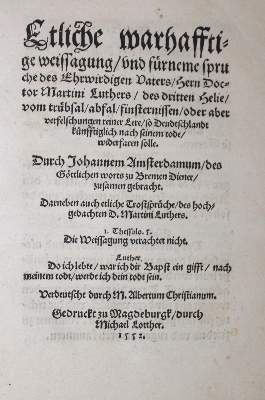 Etliche warhaffti-
ge weissagung / vnd fürneme spru
che des Ehrwirdigen Vaters / Hern Doc-
tor Martini Luthers / des dritten Helie /
vom trübsal / abfal / finsternissen / oder aber
verfelschungen reiner Lere / so Deudtschlandt
künfftiglich nach seinem tode /
widerfaren solle.
Durch Johannem Amsterdamum / des
Göttlichen worts zu Bremen Diener /
zusamen gebracht.
Darneben auch etliche Trostsprüche / des hoch-
gedachten D. Martini Luthers.
1. Thessalo. 5.
Die Weissagung verachtet nicht.
Luther.
Do ich lebte / war ich dir Bapst ein gifft / nach
meinem todt / werdt ich dein todt sein.
Verdeutscht durch M. Albertum Christianum.
Gedruckt zu Magdeburgk / durch
Michael Lotther.
1552.